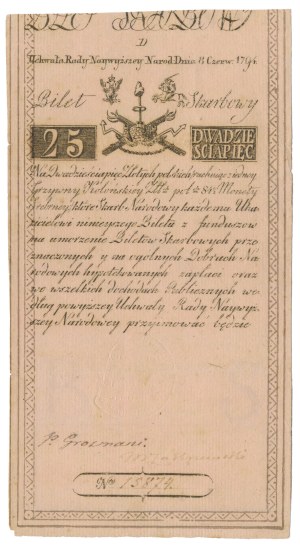 D
Uchwała Rady Naywyższey Narod. Dnia 8 Czerw. 1794.
Bilet Skarbowy
25 DWADZIE
ŚCIAPIĘC
Na Dwadzieściapięć Złotych
Grzywny Kolońskiey Złł. pol. 84½ Monety
Skarb Narodowy każdemu Oka
zicielowi ninieyszego Biletu z funduszow
na umorzenie Biletow Skarbowych prze
znaczonych y na ogolnych Dobrach Na
rodowych hypotekowanych zapłaci oraz
we wszelkich dochodach Publicznych we
dług powyższey Uchwały Rady Naywyż
szey Narodowey przyimować będzie
P. Grosmani.
No. 15874.